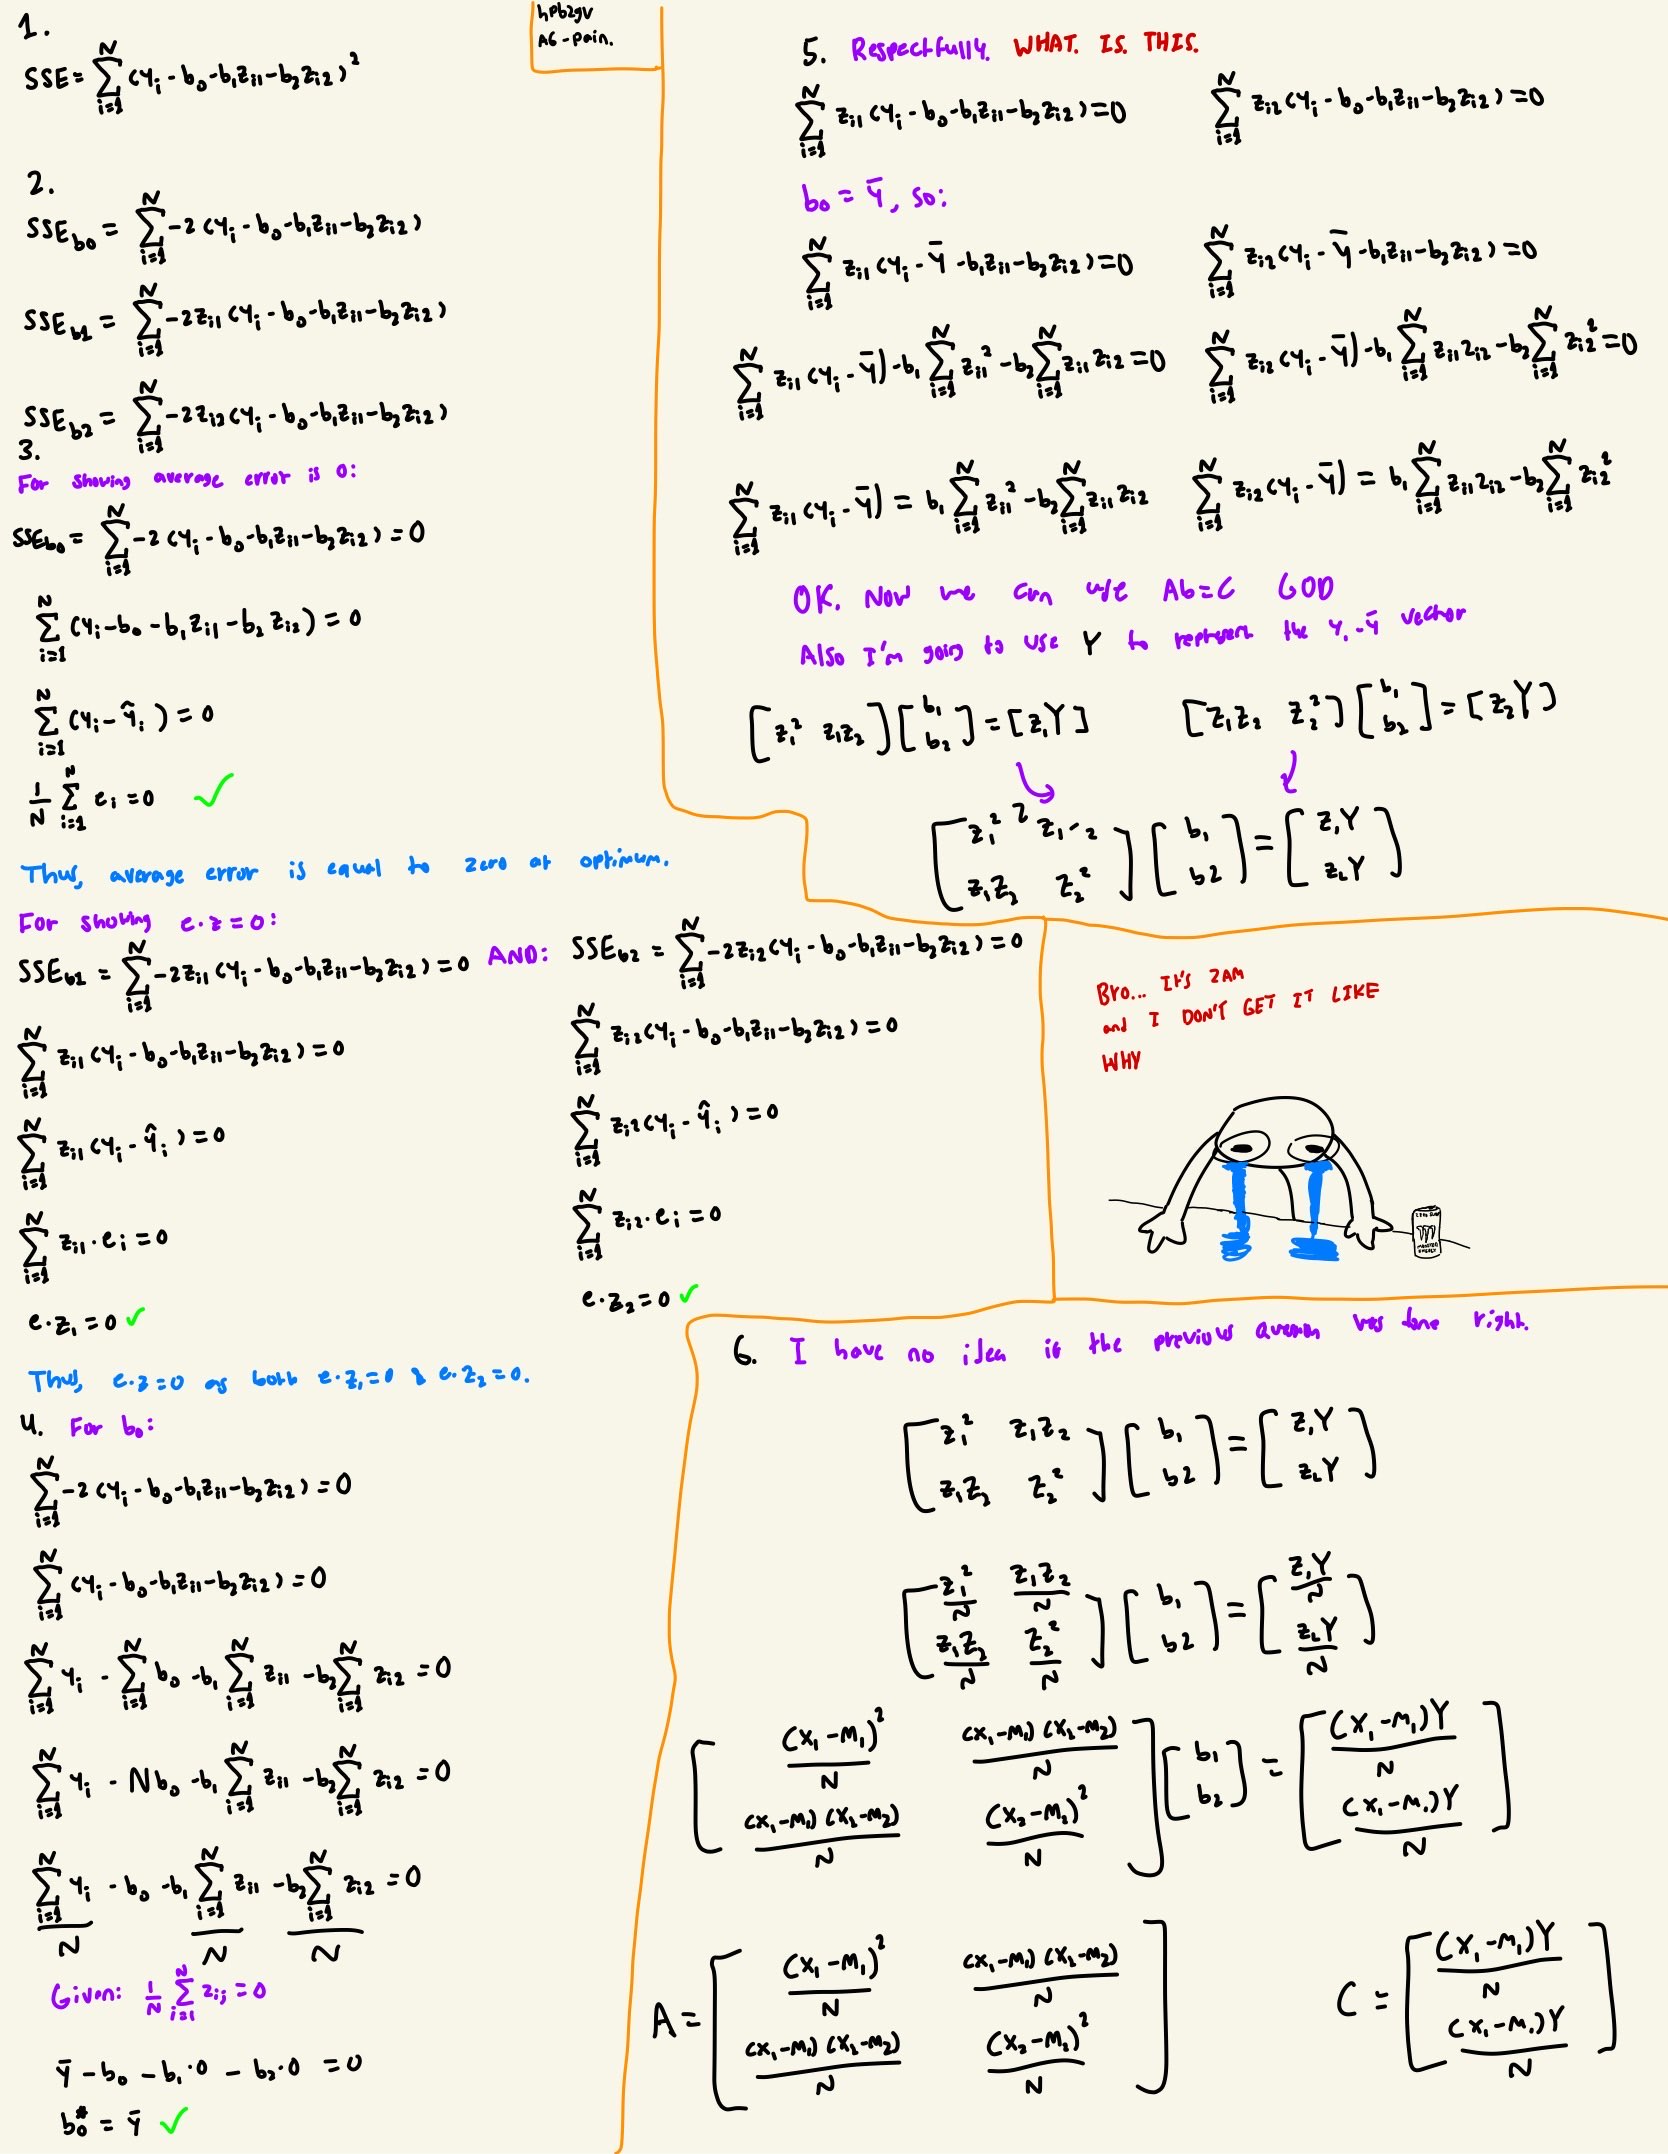 hpb2gv
A6 - pain.
1.
SSE = ∑_{i=1}^{N} (y_i - b_0 - b_1z_{i1} - b_2z_{i2})²
2.
SSE_{b0} = ∑_{i=1}^{N} -2(y_i - b_0 - b_1z_{i1} - b_2z_{i2})
SSE_{b1} = ∑_{i=1}^{N} -2z_{i1}(y_i - b_0 - b_1z_{i1} - b_2z_{i2})
SSE_{b2} = ∑_{i=1}^{N} -2z_{i2}(y_i - b_0 - b_1z_{i1} - b_2z_{i2})
3.
For showing average error is 0:
SSE_{b0} = ∑_{i=1}^{N} -2(y_i - b_0 - b_1z_{i1} - b_2z_{i2}) = 0
∑_{i=1}^{N} (y_i - b_0 - b_1z_{i1} - b_2z_{i2}) = 0
∑_{i=1}^{N} (y_i - ŷ_i) = 0
1/N ∑_{i=1}^{N} e_i = 0 ✓
Thus, average error is equal to zero at optimum.
For showing e·z = 0:
SSE_{b1} = ∑_{i=1}^{N} -2z_{i1}(y_i - b_0 - b_1z_{i1} - b_2z_{i2}) = 0
∑_{i=1}^{N} z_{i1}(y_i - b_0 - b_1z_{i1} - b_2z_{i2}) = 0
∑_{i=1}^{N} z_{i1}(y_i - ŷ_i) = 0
∑_{i=1}^{N} z_{i1}·e_i = 0
e·z_1 = 0 ✓
AND:
SSE_{b2} = ∑_{i=1}^{N} -2z_{i2}(y_i - b_0 - b_1z_{i1} - b_2z_{i2}) = 0
∑_{i=1}^{N} z_{i2}(y_i - b_0 - b_1z_{i1} - b_2z_{i2}) = 0
∑_{i=1}^{N} z_{i2}(y_i - ŷ_i) = 0
∑_{i=1}^{N} z_{i2}·e_i = 0
e·z_2 = 0 ✓
Thus, e·z = 0 as both e·z_1 = 0 & e·z_2 = 0.
4. For b_0:
∑_{i=1}^{N} -2(y_i - b_0 - b_1z_{i1} - b_2z_{i2}) = 0
∑_{i=1}^{N} (y_i - b_0 - b_1z_{i1} - b_2z_{i2}) = 0
∑_{i=1}^{N} y_i - ∑_{i=1}^{N} b_0 - b_1∑_{i=1}^{N} z_{i1} - b_2∑_{i=1}^{N} z_{i2} = 0
∑_{i=1}^{N} y_i - Nb_0 - b_1∑_{i=1}^{N} z_{i1} - b_2∑_{i=1}^{N} z_{i2} = 0
∑_{i=1}^{N} y_i / N - b_0 - b_1∑_{i=1}^{N} z_{i1} / N - b_2∑_{i=1}^{N} z_{i2} / N = 0
Given: 1/N ∑_{i=1}^{N} z_{ij} = 0
ȳ - b_0 - b_1·0 - b_2·0 = 0
b_0* = ȳ ✓
5. Respectfully. WHAT. IS. THIS.
∑_{i=1}^{N} z_{i1}(y_i - b_0 - b_1z_{i1} - b_2z_{i2}) = 0    ∑_{i=1}^{N} z_{i2}(y_i - b_0 - b_1z_{i1} - b_2z_{i2}) = 0
b_0 = ȳ, so:
∑_{i=1}^{N} z_{i1}(y_i - ȳ - b_1z_{i1} - b_2z_{i2}) = 0    ∑_{i=1}^{N} z_{i2}(y_i - ȳ - b_1z_{i1} - b_2z_{i2}) = 0
∑_{i=1}^{N} z_{i1}(y_i - ȳ) - b_1∑_{i=1}^{N} z_{i1}² - b_2∑_{i=1}^{N} z_{i1}z_{i2} = 0    ∑_{i=1}^{N} z_{i2}(y_i - ȳ) - b_1∑_{i=1}^{N} z_{i1}z_{i2} - b_2∑_{i=1}^{N} z_{i2}² = 0
∑_{i=1}^{N} z_{i1}(y_i - ȳ) = b_1∑_{i=1}^{N} z_{i1}² - b_2∑_{i=1}^{N} z_{i1}z_{i2}    ∑_{i=1}^{N} z_{i2}(y_i - ȳ) = b_1∑_{i=1}^{N} z_{i1}z_{i2} - b_2∑_{i=1}^{N} z_{i2}²
OK. Now we can use Ab=C GOD
Also I'm going to use Y to represent the y_i - ȳ vector
[z_1² z_1z_2][b_1 b_2] = [z_1Y]    [z_1z_2 z_2²][b_1 b_2] = [z_2Y]
[z_1² 2 z_1-2; z_1z_2 z_2²][b_1; b2] = [z_1Y; z_2Y]
Bro... It's 2AM
and I DON'T GET IT LIKE
WHY
MONSTER
ENERGY
6. I have no idea if the previous was done right.
[z_1² z_1z_2; z_1z_2 z_2²][b_1; b2] = [z_1Y; z_2Y]
[z_1²/N z_1z_2/N; z_1z_2/N z_2²/N][b_1; b2] = [z_1Y/N; z_2Y/N]
[(x_1-m_1)²/N (x_1-m_1)(x_2-m_2)/N; (x_1-m_1)(x_2-m_2)/N (x_2-m_2)²/N][b_1; b_2] = [(x_1-m_1)Y/N; (x_1-m_1)Y/N]
A = [(x_1-m_1)²/N (x_1-m_1)(x_2-m_2)/N; (x_1-m_1)(x_2-m_2)/N (x_2-m_2)²/N]    C = [(x_1-m_1)Y/N; (x_1-m_1)Y/N]